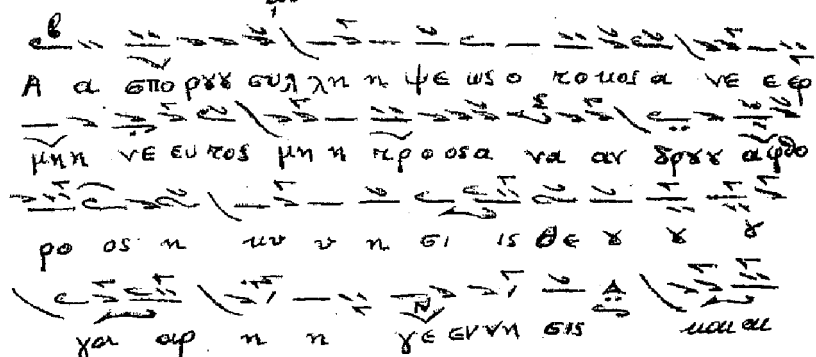 Α α σπο ρȣȣ συλ λη η ψε ως ο το κος α νε ε ερ
μη η νε ευ τος μη η τρο ος α να αν δρȣȣ αφθο
ρο ος η κυ υ η σι ις Θε ȣ ȣ ȣ
γα αρ η η γε εννη σις και αι